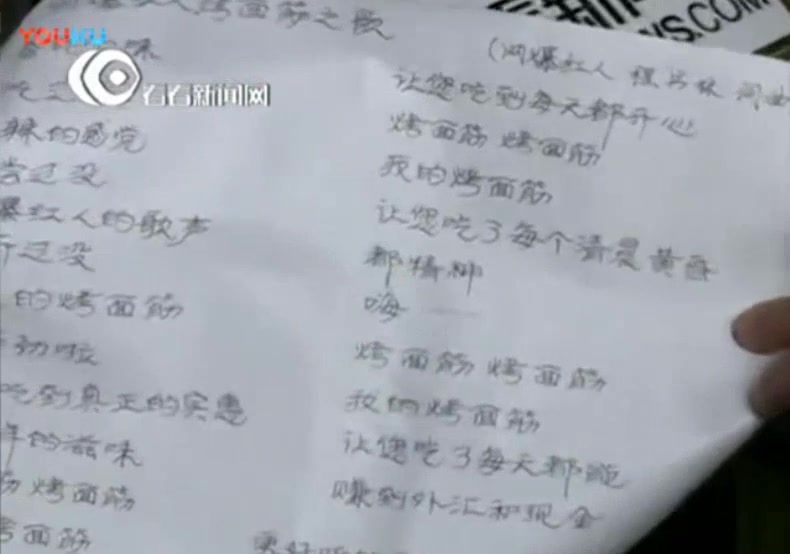 YOUKU
看看新闻网
NEWS.COM
红人烤面筋之歌
(网爆红人 程 词曲
味
辣的感觉
尝过没
爆红人的歌声
听过没
的烤面筋
动啦
吃到真正的实惠
年的滋味
烤面筋
烤面筋
让您吃到每天都开心
烤面筋 烤面筋
我的烤面筋
让您吃了每个清晨黄昏
都精神
嗨
烤面筋 烤面筋
我的烤面筋
让您吃了每天都能
赚到外汇和现金
更好